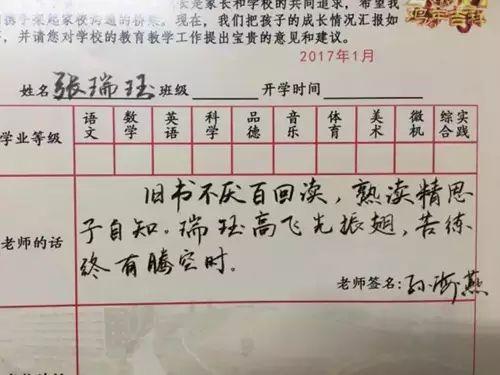 长是家长和学校的共同追求,希望我
携手架起家校沟通的桥梁。现在,我们把孩子的成长情况汇报如
并请您对学校的教育教学工作提出宝贵的意见和建议。
2017年1月
姓名 张瑞珏 班级 开学时间
学业等级 语文 数学 英语 科学 品德 音乐 体育 美术 微机 综合实践
老师的话
旧书不厌百回读,熟读精思
子自知。瑞珏高飞先振翅,苦练
终有腾空时。
老师签名:孙海燕